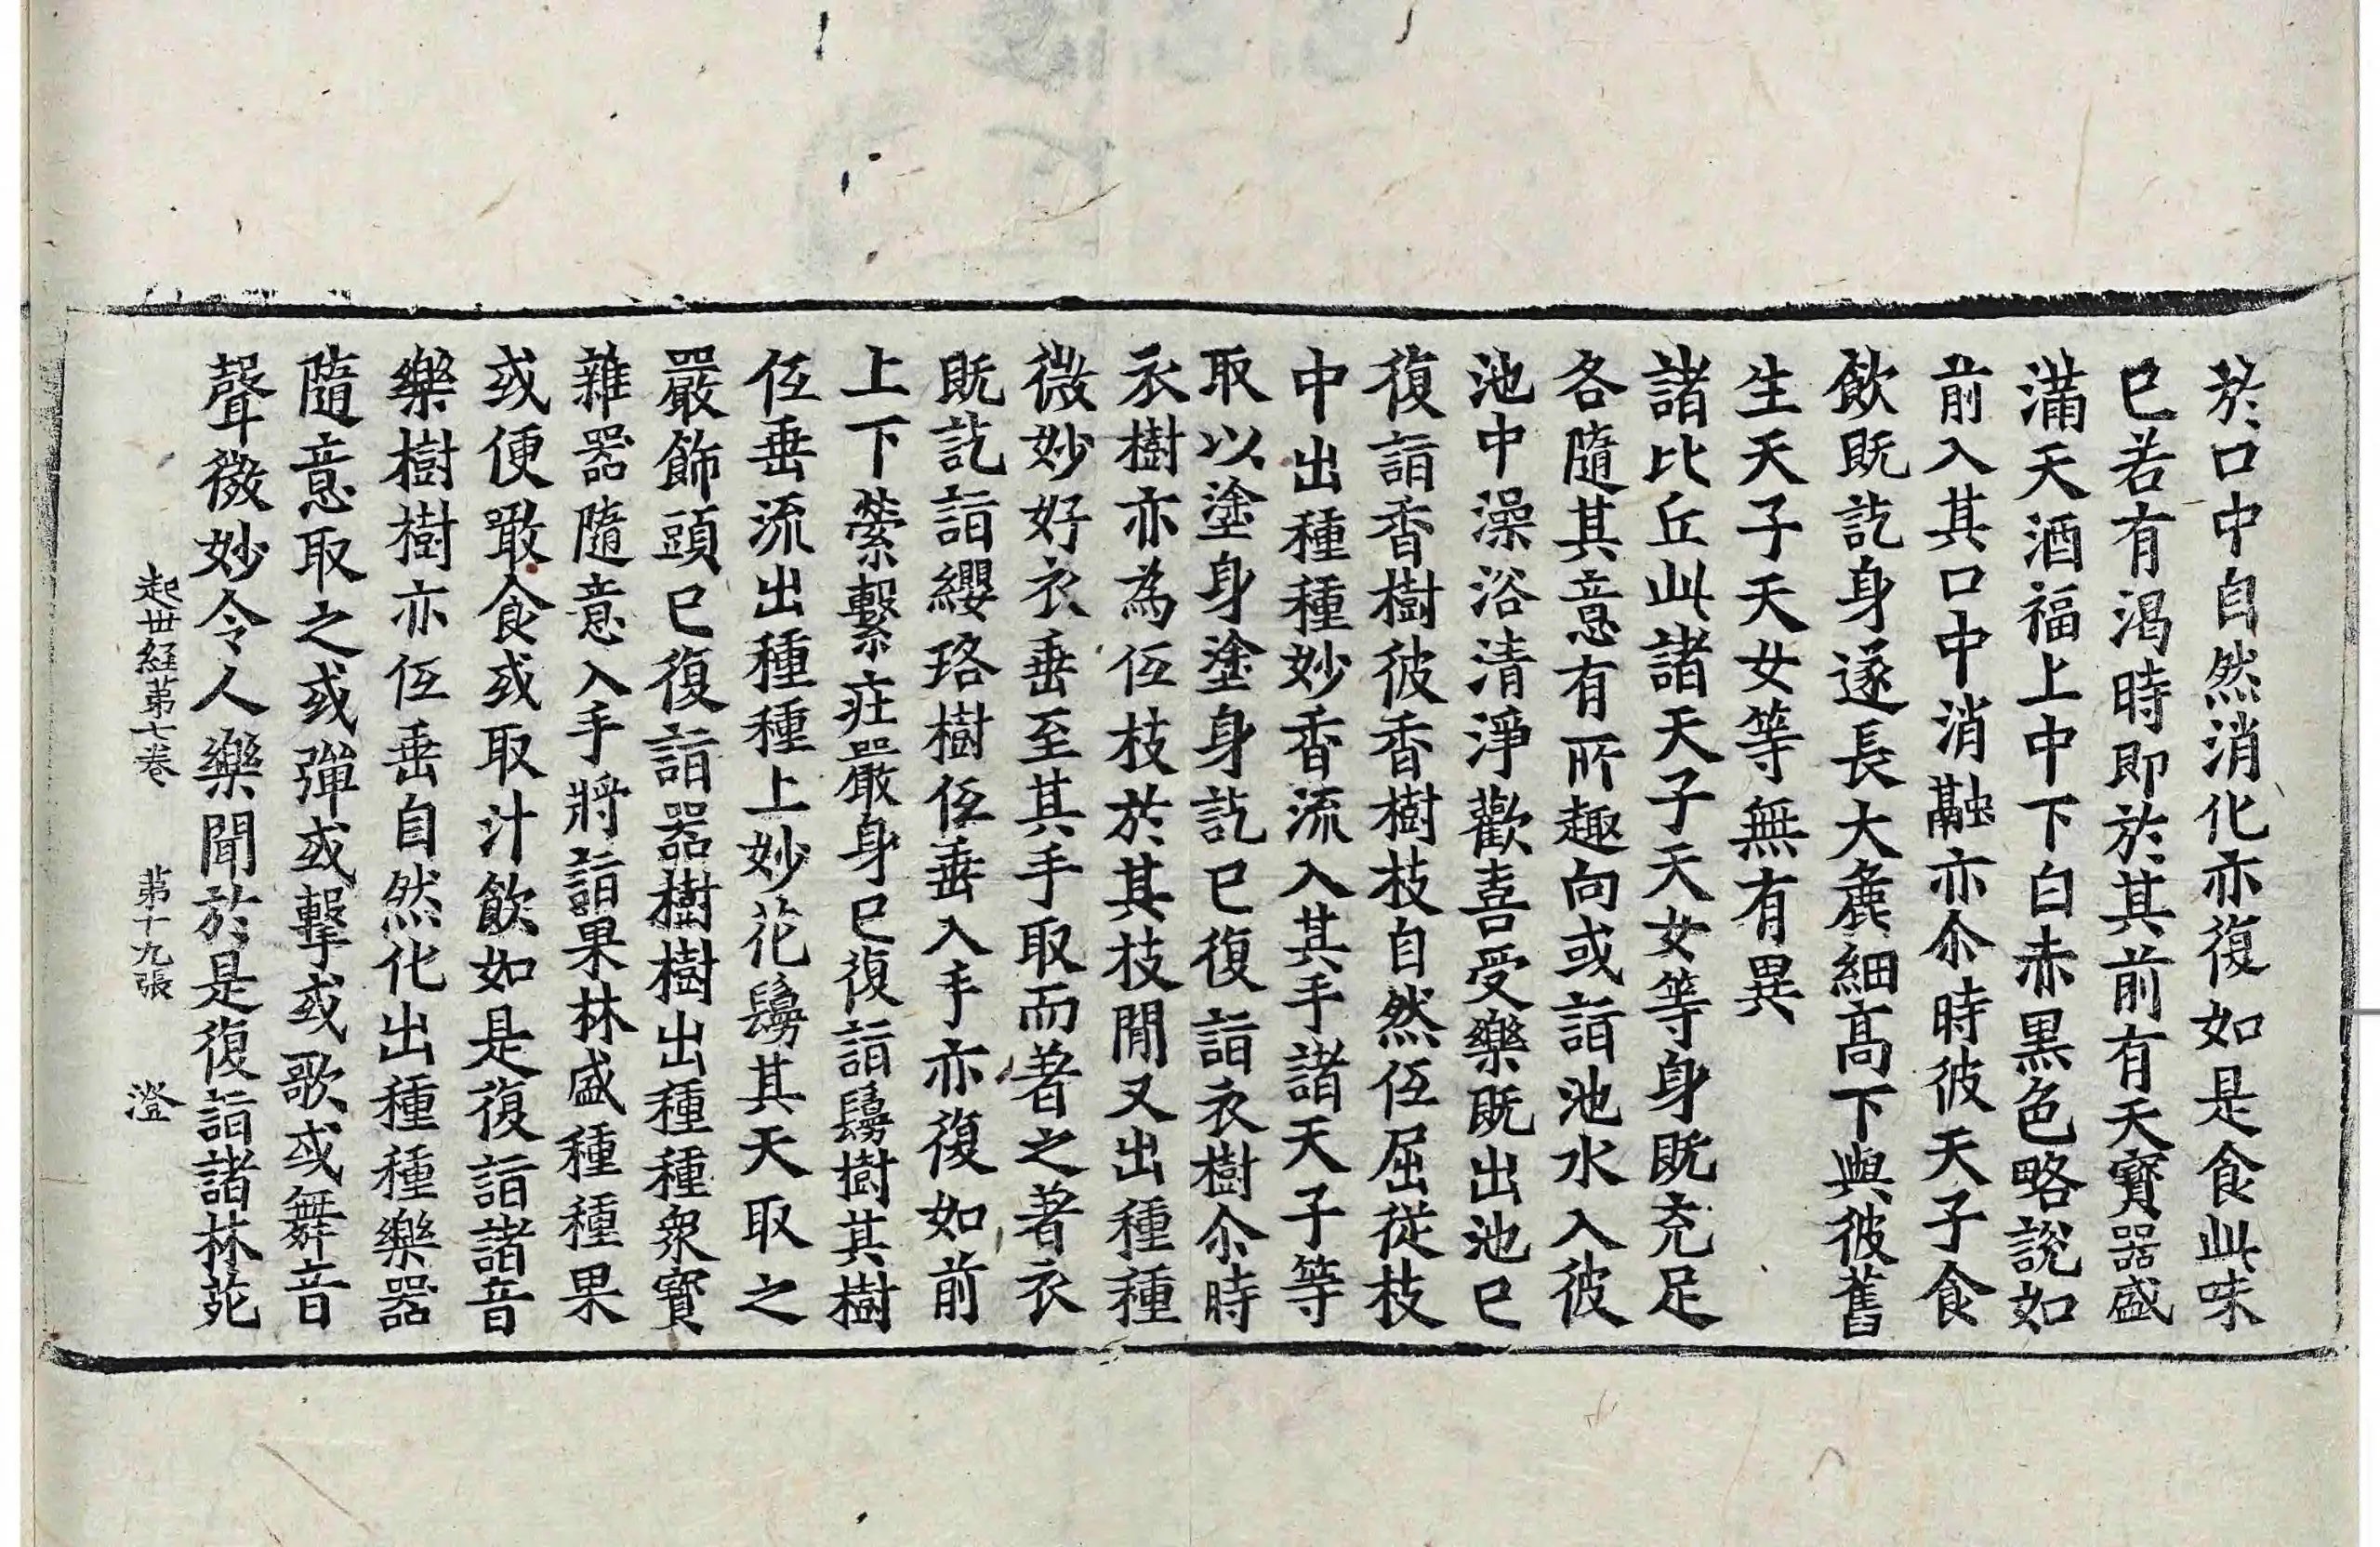 於口中自然消化亦復如是食此味
已若有渴時即於其前有天寶器盛
滿天酒福上中下白赤黑色略說如
前入其口中消融亦尒時彼天子食
飲既訖身遂長大麁細高下與彼舊
生天子天女等無有異
諸比丘此諸天子天女等身既充足
各隨其意有所趣向或詣池水入彼
池中澡浴清淨歡喜受樂既出池已
復詣香樹彼香樹枝自然仾屈從枝
中出種種妙香流入其手諸天子等
取以塗身塗身訖已復詣衣樹尒時
衣樹亦為仾枝於其枝閒又出種種
微妙好衣垂至其手取而著之著衣
既訖詣纓珞樹仾垂入手亦復如前
上下縈繫莊嚴身已復詣鬘樹其樹
仾垂流出種種上妙花鬘其天取之
嚴飾頭已復詣器樹樹出種種衆寶
雜器隨意入手將詣果林盛種種果
或便噉食或取汁飲如是復詣諸音
樂樹樹亦仾垂自然化出種種樂器
隨意取之或彈或擊或歌或舞音
聲微妙令人樂聞於是復詣諸林苑
起世経苐七卷 苐十九張 澄